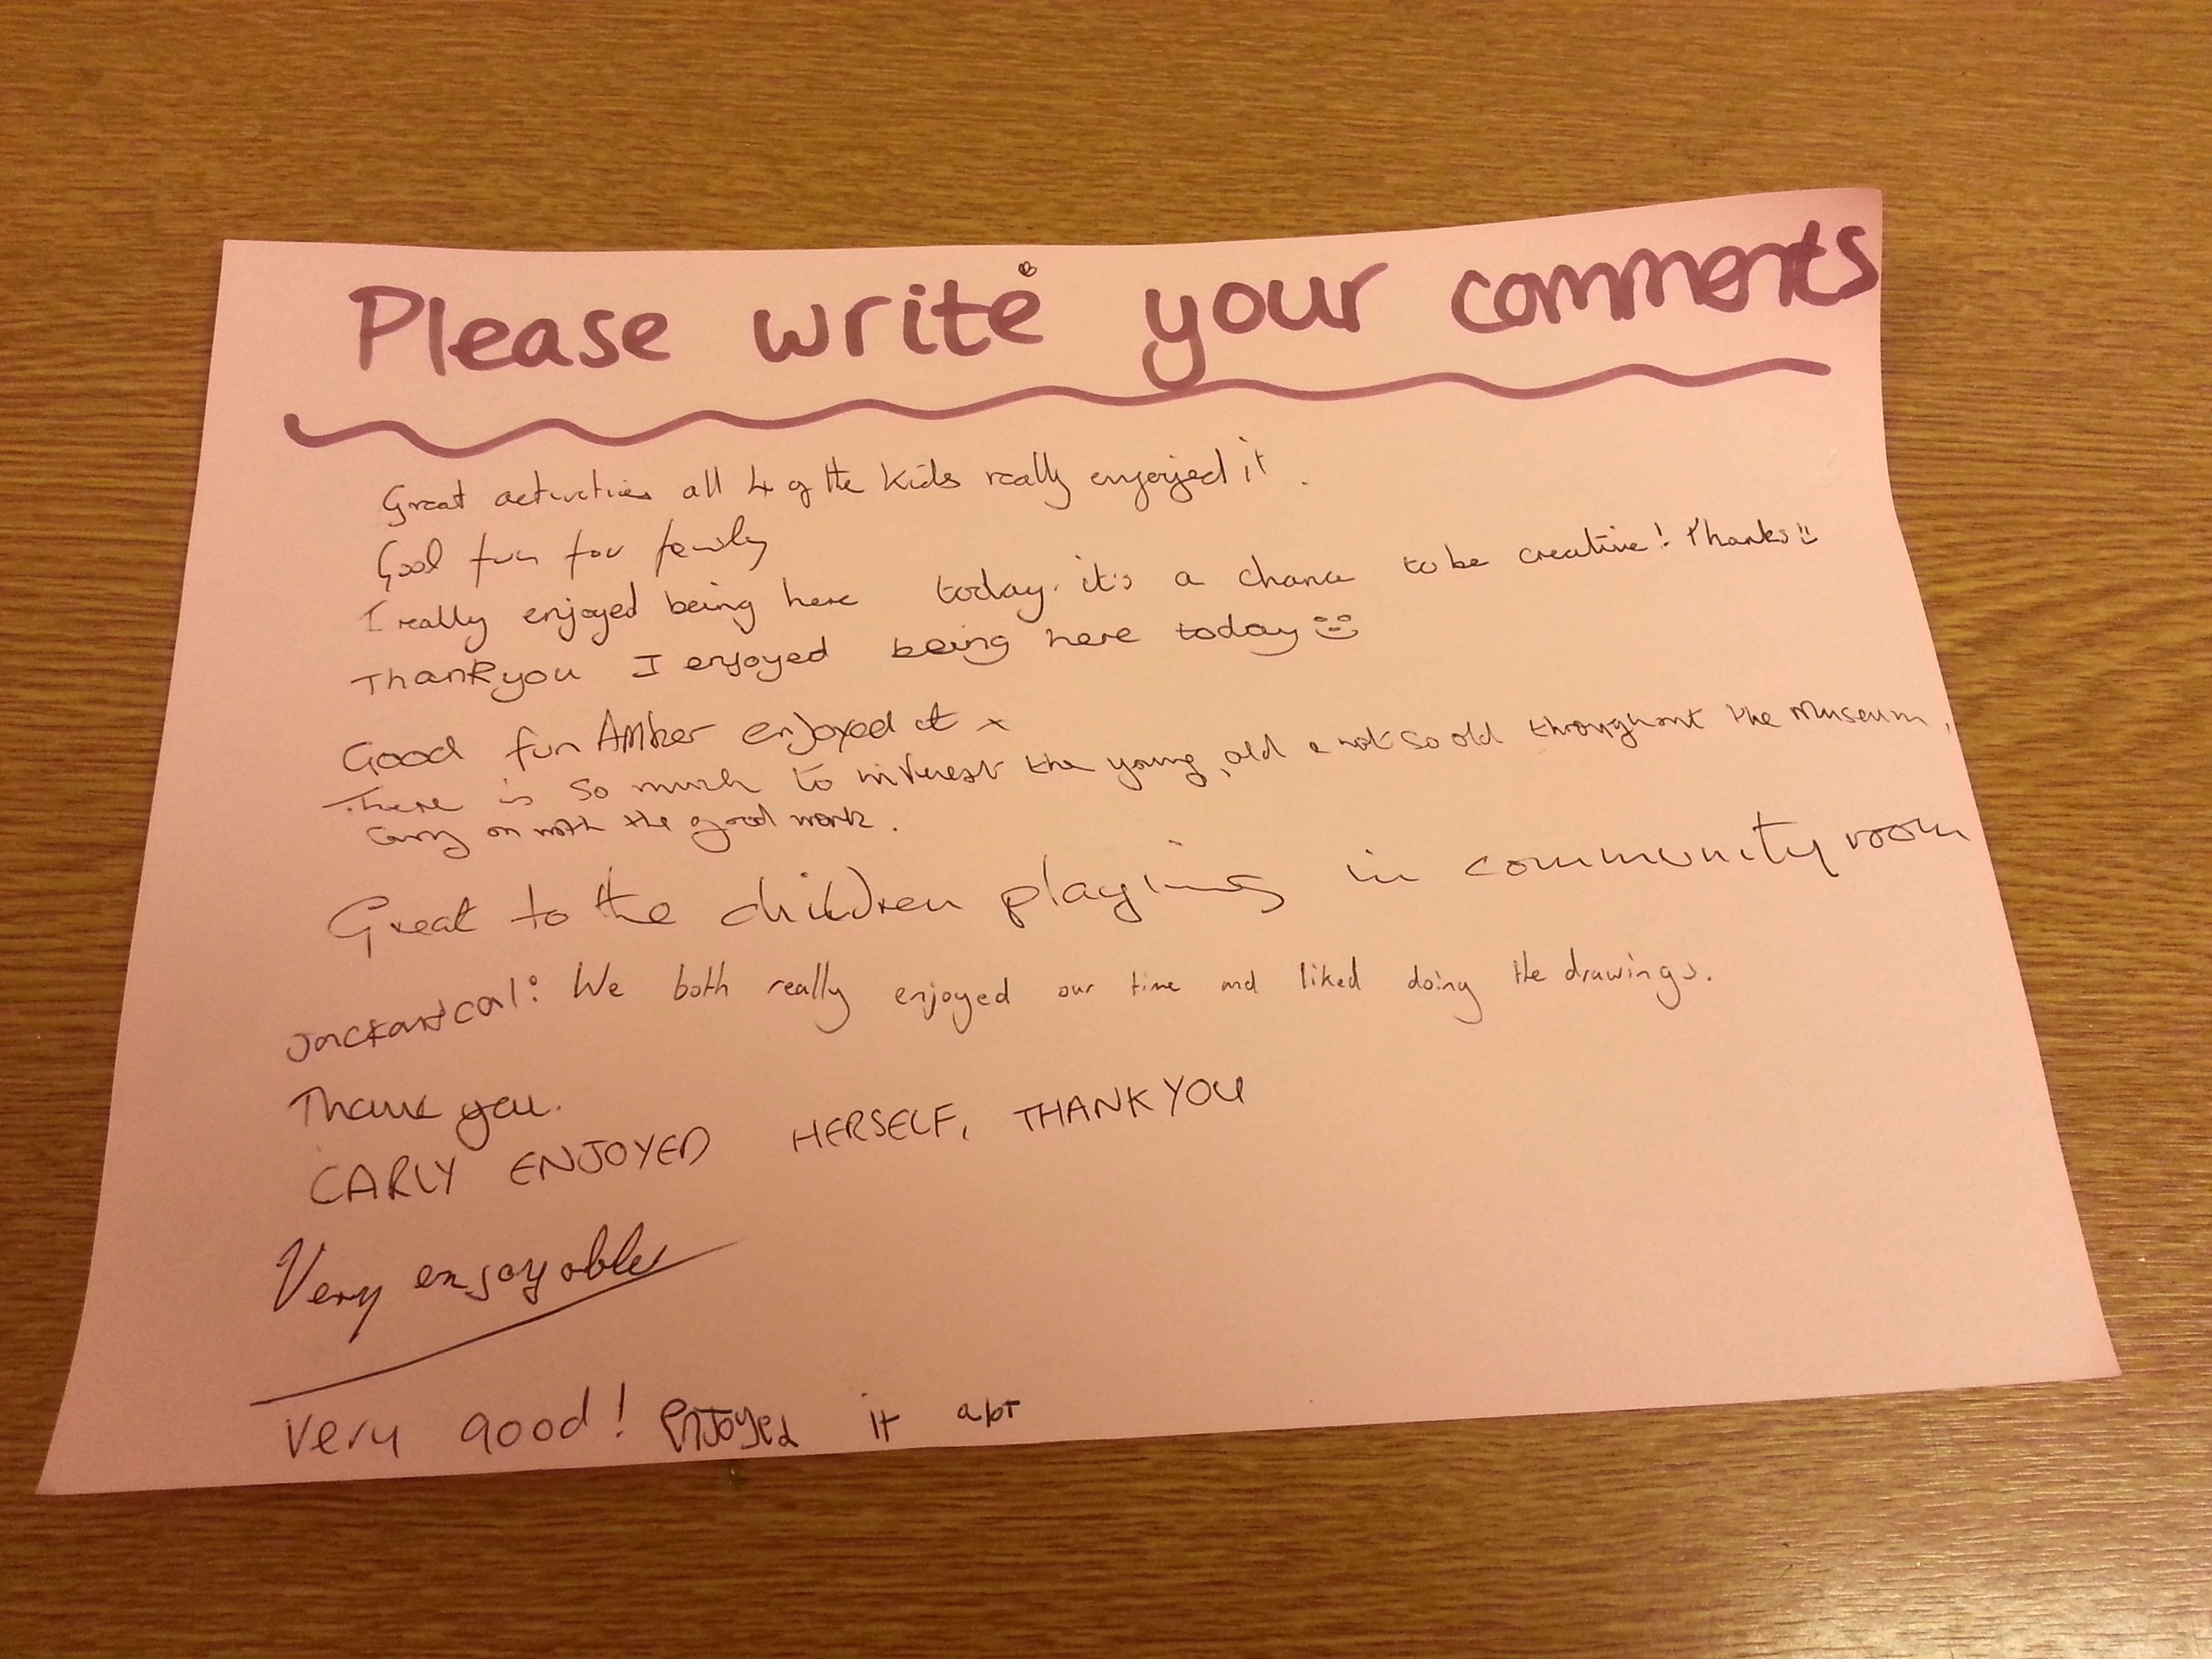 Please write your comments
Great activities all 4 of the kids really enjoyed it.
Good fun for family
I really enjoyed being here today. it's a chance to be creative! Thanks
Thankyou I enjoyed being here today
Good fun Amber enjoyed it x
There is so much to interest the young, old & not so old throughout the museum,
Carry on with the good work.
Great to the children playing in community room
Jack and cal: We both really enjoyed our time and liked doing the drawings.
Thank you.
CARLY ENJOYED HERSELF, THANK YOU
Very enjoyable
very good! enjoyed it alot